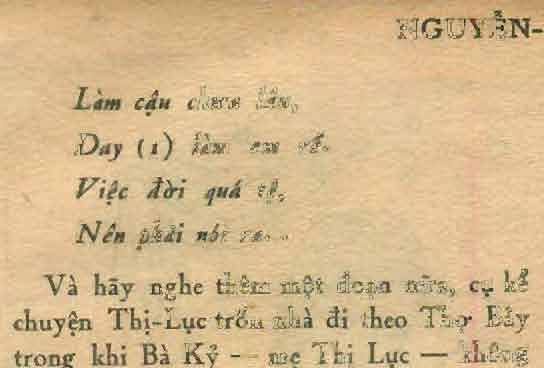 NGUYỄN-
Làm cậu chưa lâu,
Day (1) làm em rể.
Việc đời quá tệ,
Nên phải nói ra...
Và hãy nghe thêm một đoạn nữa, cụ kể
chuyện Thị-Lục trốn nhà đi theo Thợ Bảy
trong khi Bà Ký — mẹ Thị Lục — không